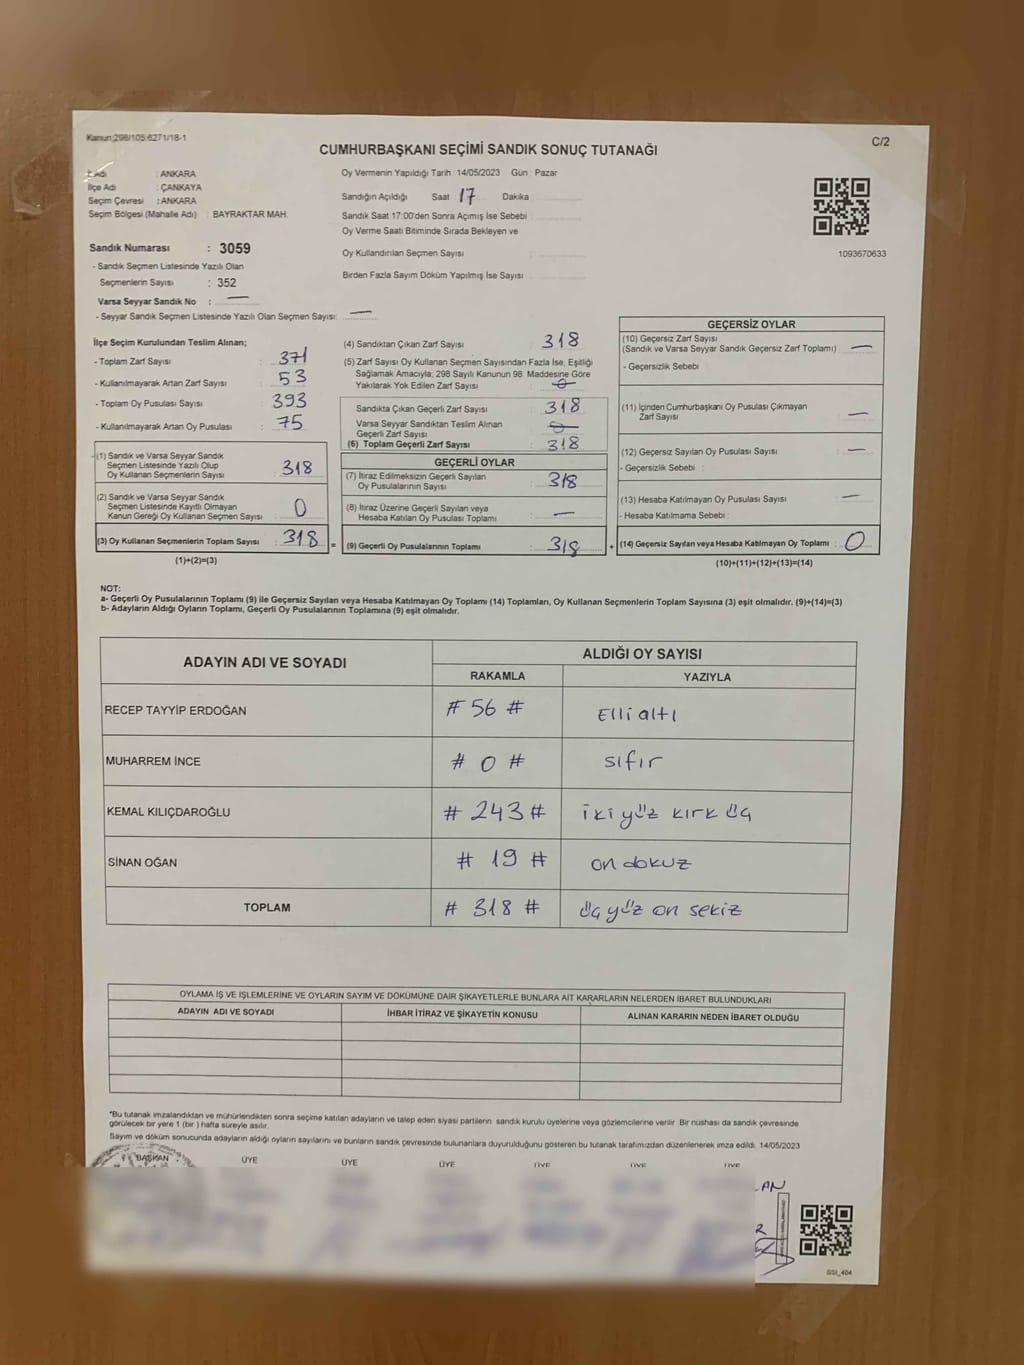 Kanun:298/105:6271/18-1
C/2
CUMHURBAŞKANI SEÇİMİ SANDIK SONUÇ TUTANAĞI
: ANKARA
İlçe Adı : ÇANKAYA
Seçim Çevresi : ANKARA
Seçim Bölgesi (Mahalle Adı) : BAYRAKTAR MAH.
Oy Vermenin Yapıldığı Tarih 14/05/2023 Gün : Pazar
Sandığın Açıldığı Saat 17 Dakika
Sandık Saat 17:00'den Sonra Açımış İse Sebebi
Oy Verme Saati Bitiminde Sırada Bekleyen ve
Oy Kullandırılan Seçmen Sayısı :
Birden Fazla Sayım Döküm Yapılmış İse Sayısı
1093670633
Sandık Numarası : 3059
- Sandık Seçmen Listesinde Yazılı Olan
Seçmenlerin Sayısı : 352
Varsa Seyyar Sandık No : —
- Seyyar Sandık Seçmen Listesinde Yazılı Olan Seçmen Sayısı: —
İlçe Seçim Kurulundan Teslim Alınan;
- Toplam Zarf Sayısı : 371
- Kullanılmayarak Artan Zarf Sayısı : 53
- Toplam Oy Pusulası Sayısı : 393
- Kullanılmayarak Artan Oy Pusulası : 75
(1) Sandık ve Varsa Seyyar Sandık
Seçmen Listesinde Yazılı Olup
Oy Kullanan Seçmenlerin Sayısı : 318
(2) Sandık ve Varsa Seyyar Sandık
Seçmen Listesinde Kayıtlı Olmayan
Kanun Gereği Oy Kullanan Seçmen Sayısı : 0
(3) Oy Kullanan Seçmenlerin Toplam Sayısı : 318 =
(1)+(2)=(3)
(4) Sandıktan Çıkan Zarf Sayısı : 318
(5) Zarf Sayısı Oy Kullanan Seçmen Sayısından Fazla İse, Eşitliği
Sağlamak Amacıyla; 298 Sayılı Kanunun 98. Maddesine Göre
Yakılarak Yok Edilen Zarf Sayısı : 0
Sandıkta Çıkan Geçerli Zarf Sayısı : 318
Varsa Seyyar Sandıktan Teslim Alınan
Geçerli Zarf Sayısı : 0
(6) Toplam Geçerli Zarf Sayısı : 318
GEÇERLİ OYLAR
(7) İtiraz Edilmeksizin Geçerli Sayılan
Oy Pusulalarının Sayısı : 318
(8) İtiraz Üzerine Geçerli Sayılan veya
Hesaba Katılan Oy Pusulası Toplamı : —
(9) Geçerli Oy Pusulalarının Toplamı : 318 +
GEÇERSİZ OYLAR
(10) Geçersiz Zarf Sayısı
(Sandık ve Varsa Seyyar Sandık Geçersiz Zarf Toplamı) : —
- Geçersizlik Sebebi :
(11) İçinden Cumhurbaşkanı Oy Pusulası Çıkmayan
Zarf Sayısı : —
(12) Geçersiz Sayılan Oy Pusulası Sayısı : —
- Geçersizlik Sebebi :
(13) Hesaba Katılmayan Oy Pusulası Sayısı : —
- Hesaba Katılmama Sebebi :
(14) Geçersiz Sayılan veya Hesaba Katılmayan Oy Toplamı : 0
(10)+(11)+(12)+(13)=(14)
NOT:
a- Geçerli Oy Pusulalarının Toplamı (9) ile Geçersiz Sayılan veya Hesaba Katılmayan Oy Toplamı (14) Toplamları, Oy Kullanan Seçmenlerin Toplam Sayısına (3) eşit olmalıdır. (9)+(14)=(3)
b- Adayların Aldığı Oyların Toplamı, Geçerli Oy Pusulalarının Toplamına (9) eşit olmalıdır.
ADAYIN ADI VE SOYADI
ALDIĞI OY SAYISI
RAKAMLA YAZIYLA
RECEP TAYYİP ERDOĞAN # 56 # Elli altı
MUHARREM İNCE # 0 # sıfır
KEMAL KILIÇDAROĞLU # 243 # iki yüz kırk üç
SİNAN OĞAN # 19 # on dokuz
TOPLAM # 318 # üç yüz on sekiz
OYLAMA İŞ VE İŞLEMLERİNE VE OYLARIN SAYIM VE DÖKÜMÜNE DAİR ŞİKAYETLERLE BUNLARA AİT KARARLARIN NELERDEN İBARET BULUNDUKLARI
ADAYIN ADI VE SOYADI İHBAR İTİRAZ VE ŞİKAYETİN KONUSU ALINAN KARARIN NEDEN İBARET OLDUĞU
*Bu tutanak imzalandıktan ve mühürlendikten sonra seçime katılan adayların ve talep eden siyasi partilerin sandık kurulu üyelerine veya gözlemcilerine verilir .Bir nüshası da sandık çevresinde
görülecek bir yere 1 (bir ) hafta süreyle asılır.
Sayım ve döküm sonucunda adayların aldığı oyların sayılarını ve bunların sandık çevresinde bulunanlara duyurulduğunu gösteren bu tutanak tarafımızdan düzenlenerek imza edildi. 14/05/2023
BAŞKAN ÜYE ÜYE ÜYE ÜYE ÜYE ÜYE
GSI_404